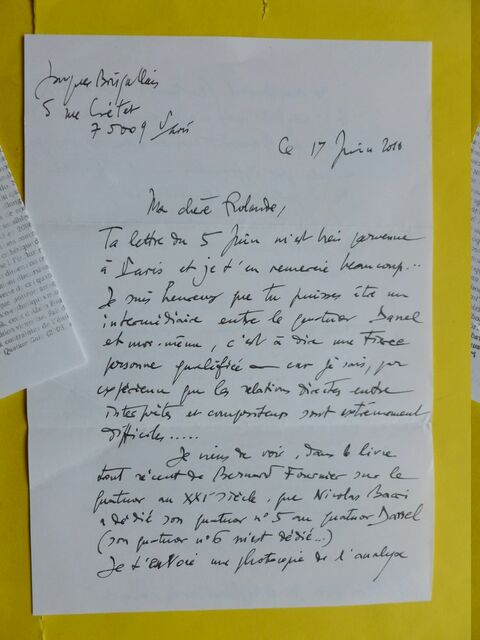 Jacques Boisgallais
5 rue Crétet
75009 Paris
Ce 17 Juin 2010
Ma chère Rolande,
Ta lettre du 5 Juin m'est bien parvenue
à Paris et je t'en remercie beaucoup...
Je suis heureux que tu puisses être un
intermédiaire entre le quatuor Danel
et moi-même, c'est à dire une Tierce
personne qualifiée — car je sais, par
expérience que les relations directes entre
interprètes et compositeurs sont extrêmement
difficiles.....
Je viens de voir, dans le livre
tout récent de Bernard Fournier sur le
quatuor au XXI siècle, que Nicolas Bacri
a dédié son quatuor n°5 au quatuor Danel
(son quatuor n°6 m'est dédié...)
Je t'envoie une photocopie de l'analyse